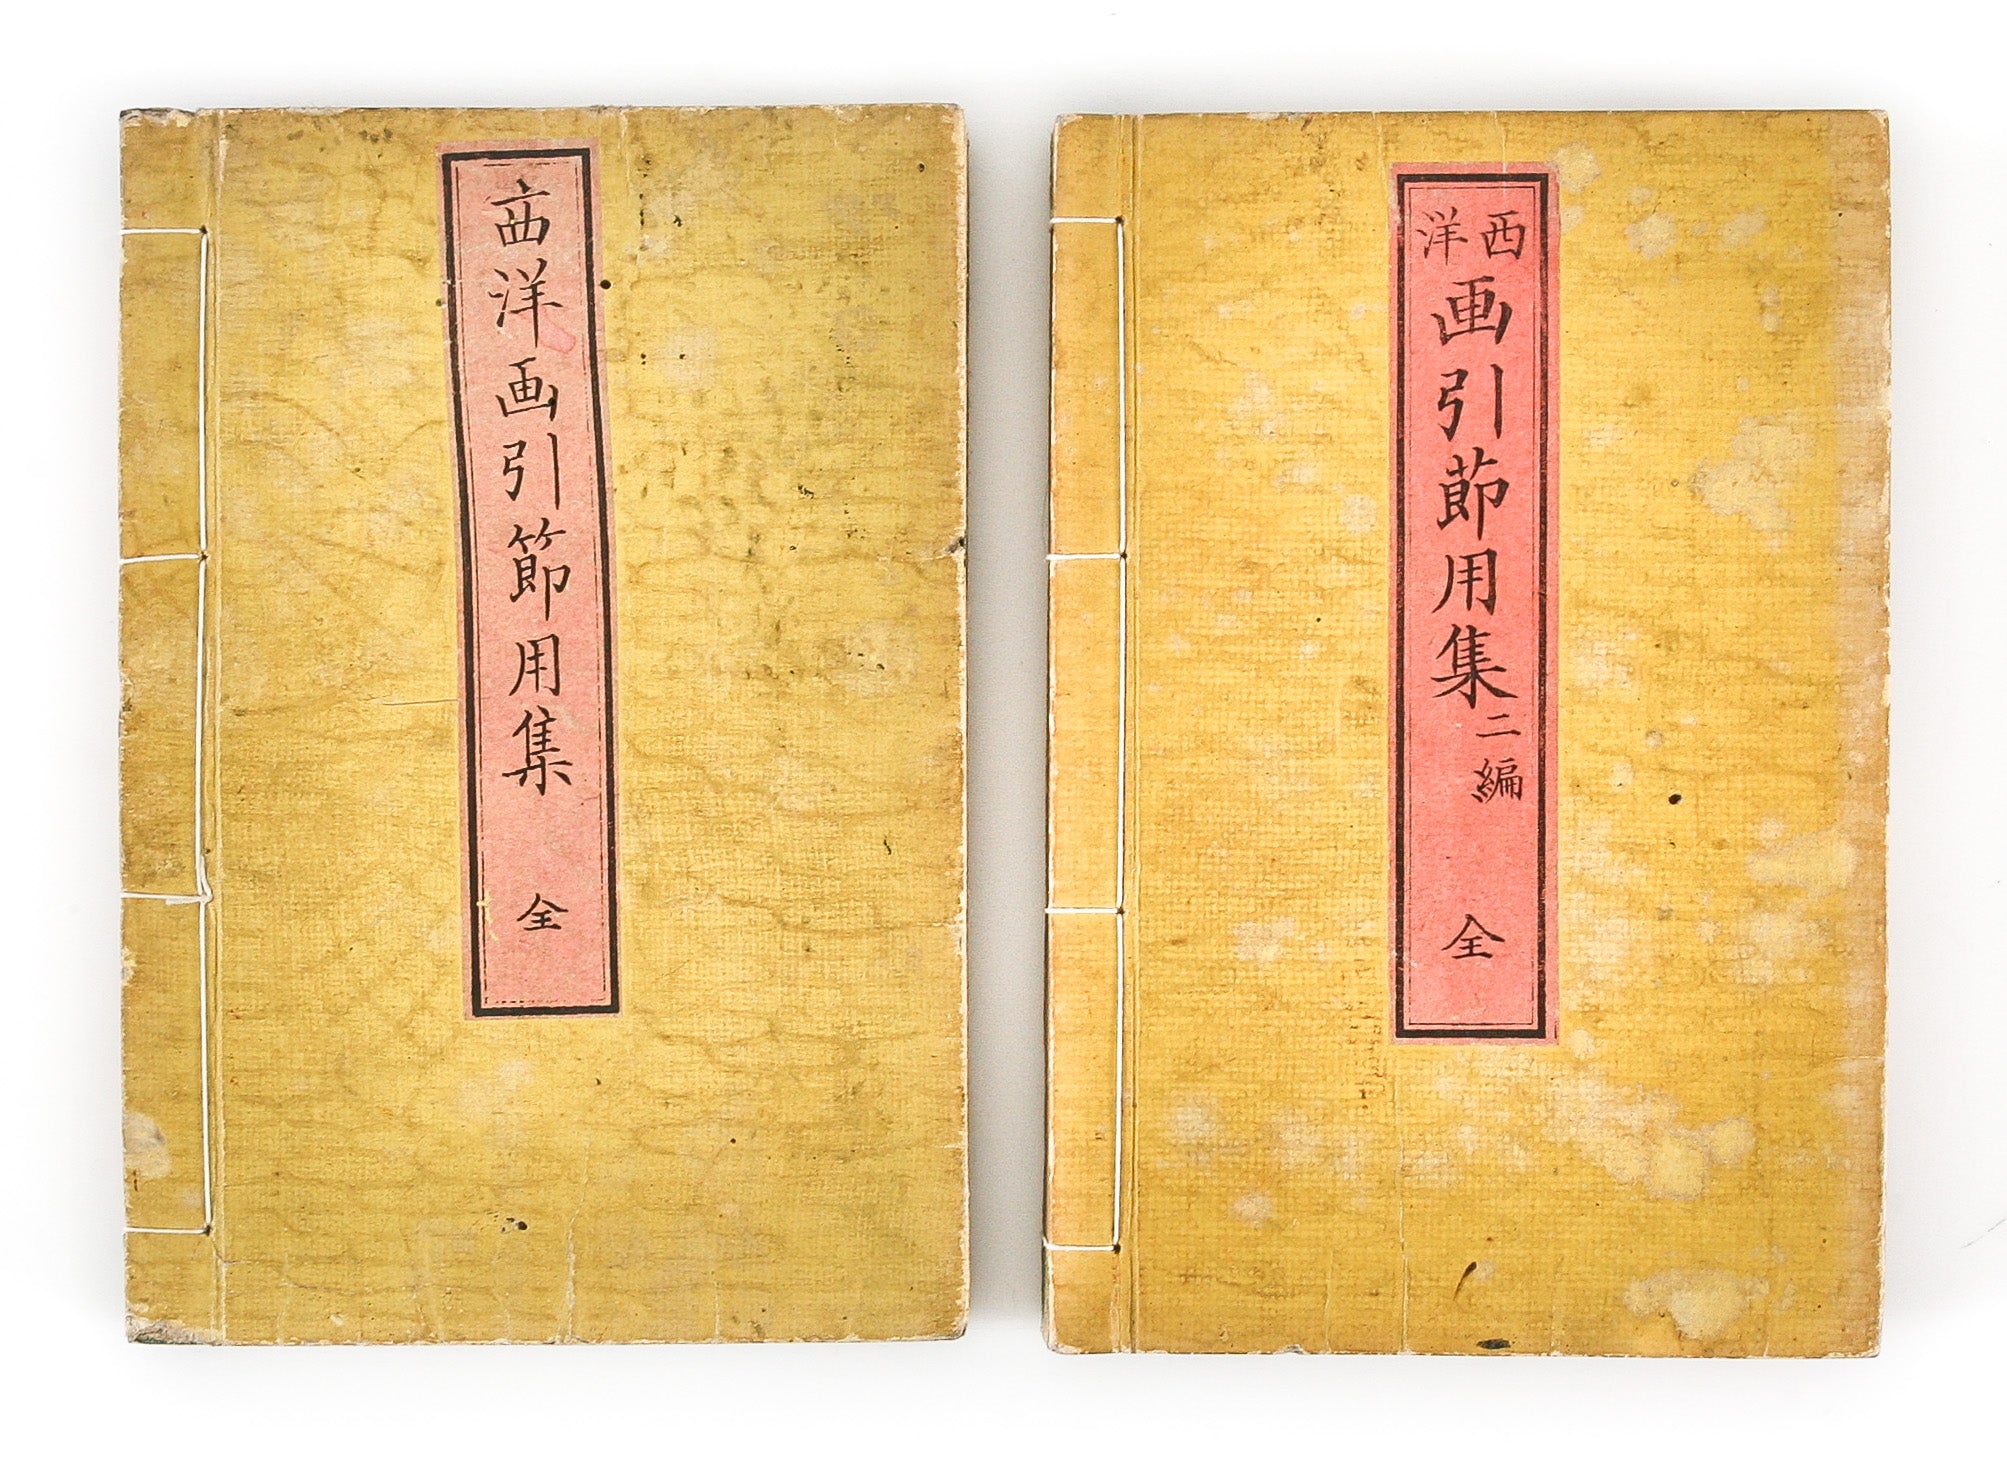 西洋画引節用集 全
西洋画引節用集二編 全